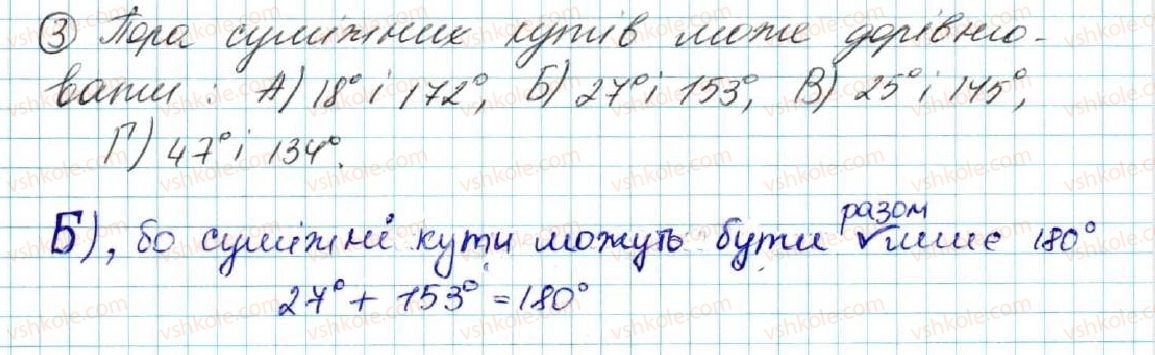 ③ Пара суміжних кутів може дорівню-
вати: А) 18° і 172°, Б) 27° і 153°, В) 25° і 145°,
Г) 47° і 134°.
разом
Б), бо суміжні кути можуть бути лише 180°
27° + 153° = 180°